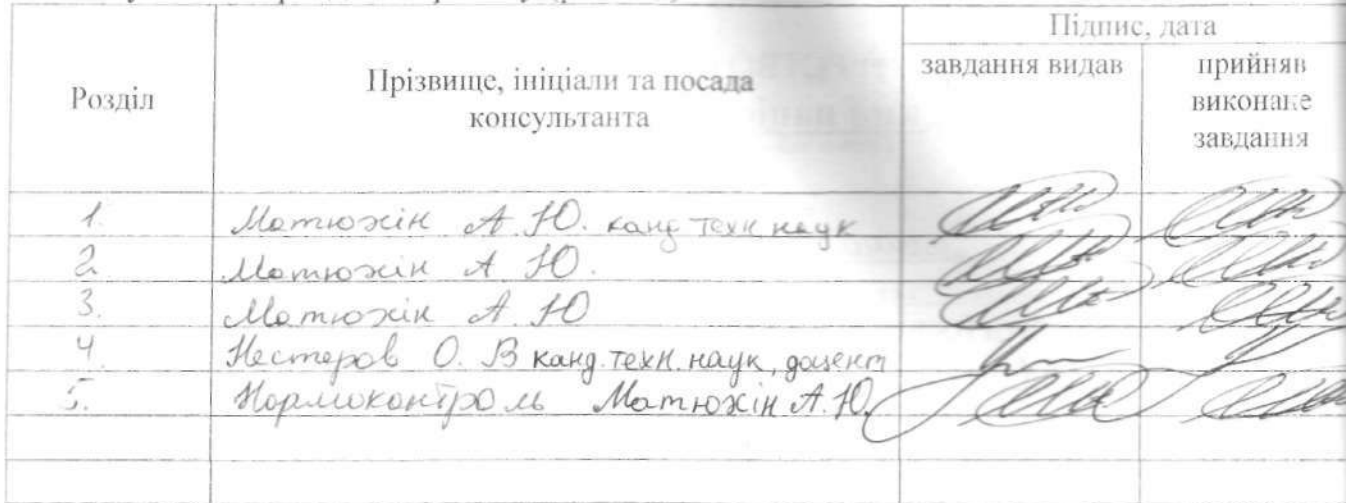 Підпис, дата
Розділ
Прізвище, ініціали та посада
консультанта
завдання видав
прийняв
виконане
завдання
1. Матюхін А. Ю. канд техн наук
2. Матюхін А. Ю.
3. Матюхін А. Ю
4 Нестеров О. В канд. техн. наук, доцент
5. Нормоконтроль Матюхін А. Ю.